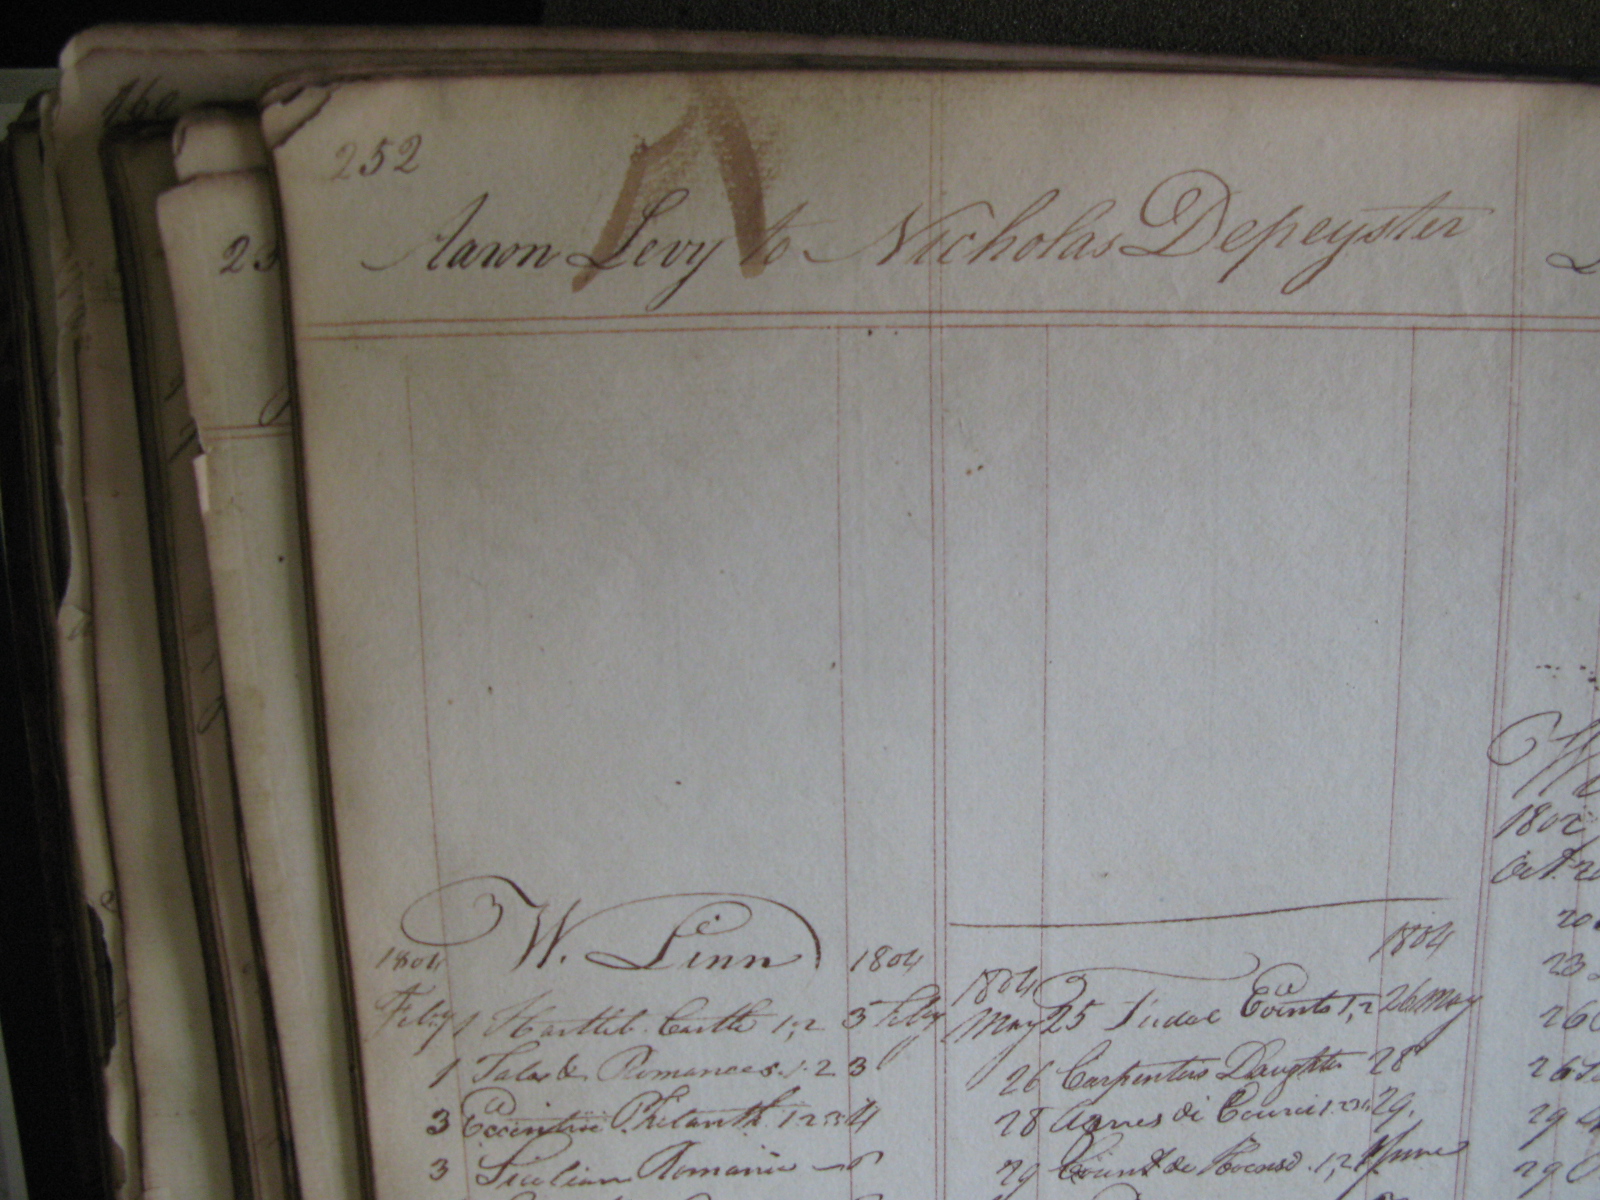 160
252
Aaron Levy to Nicholas Depeyster
23
W. Linn
1804 1804
Feby 1 Castle 1,2 3 Feby
1 Tales & Romances 1.2 3
3 Eccentric Philanth. 1.2.3 4
3 Sicilian Romance
1804 1804
May 25 Events 1,2 26 May
26 Carpenters Daughter 28
28 Agnes di Courci 29.
29 Count de 1,2 1 June
1802
Oct. 20
20
23
26
26
29
29